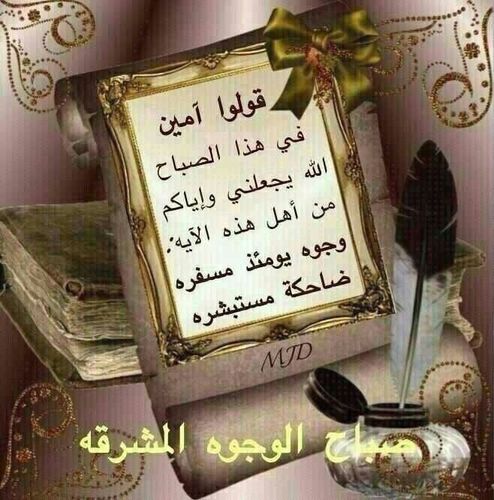 قولوا آمين
في هذا الصباح
الله يجعلني وإياكم
من أهل هذه الآيه:
وجوه يومئذ مسفره
ضاحكة مستبشره
MJD
صباح الوجوه المشرقه